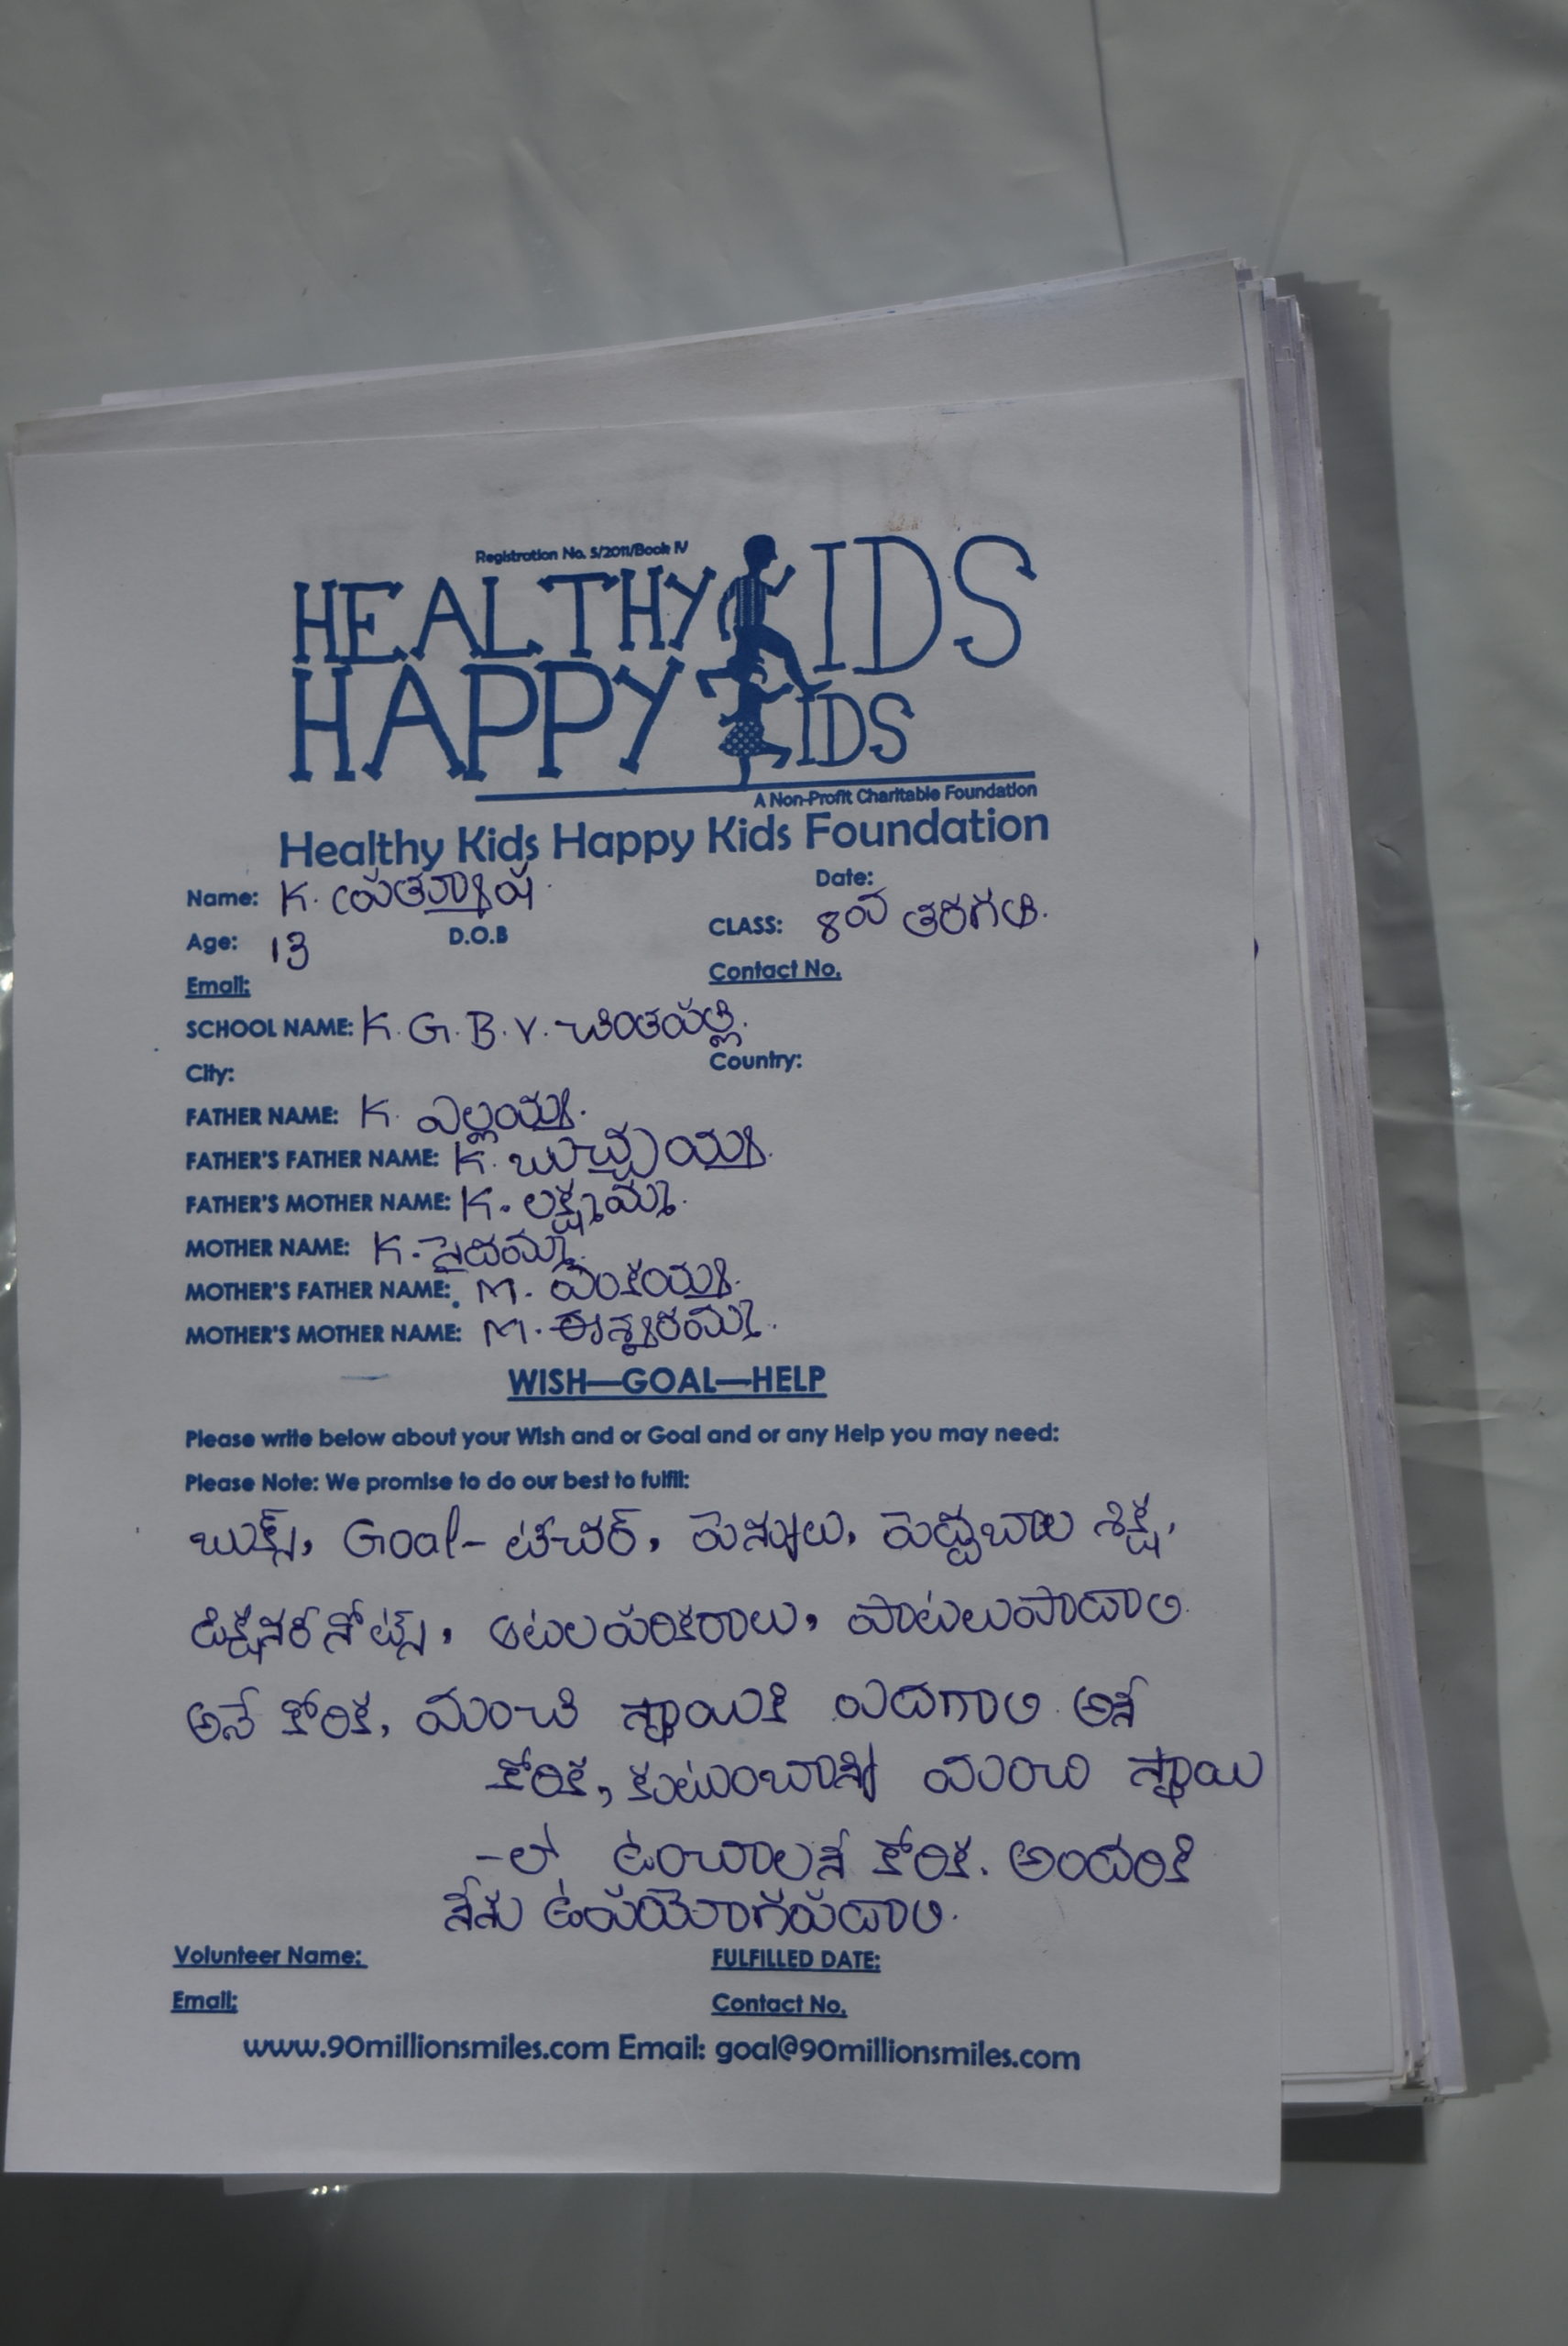 Registration No. 5/2011/Book IV
HEALTHY KIDS
HAPPY KIDS
A Non-Profit Charitable Foundation
Healthy Kids Happy Kids Foundation
Name: K. ప్రత్యూష. Date:
Age: 13 D.O.B CLASS: 8వ తరగతి.
Email: Contact No.
SCHOOL NAME: K.G.B.V. చింతపల్లి.
City: Country:
FATHER NAME: K. ఎల్లయ్య.
FATHER'S FATHER NAME: K. బుచ్చయ్య.
FATHER'S MOTHER NAME: K. లక్ష్మమ్మ.
MOTHER NAME: K. సైదమ్మ.
MOTHER'S FATHER NAME: M. వెంకయ్య.
MOTHER'S MOTHER NAME: M. ఈశ్వరమ్మ.
WISH—GOAL—HELP
Please write below about your Wish and or Goal and or any Help you may need:
Please Note: We promise to do our best to fulfil:
బుక్స్, Goal- టీచర్, పెన్నులు, పెద్దబాల శిక్ష,
డిక్షనరీ నోట్స్, ఆటల పరికరాలు, పాటలుపాడాలి
అనే కోరిక, మంచి స్థాయికి ఎదగాలి అనే
కోరిక, కుటుంబాన్ని మంచి స్థాయి
-లో ఉంచాలనే కోరిక. అందరికి
నేను ఉపయోగపడాలి.
Volunteer Name: FULFILLED DATE:
Email: Contact No.
www.90millionsmiles.com Email: goal@90millionsmiles.com